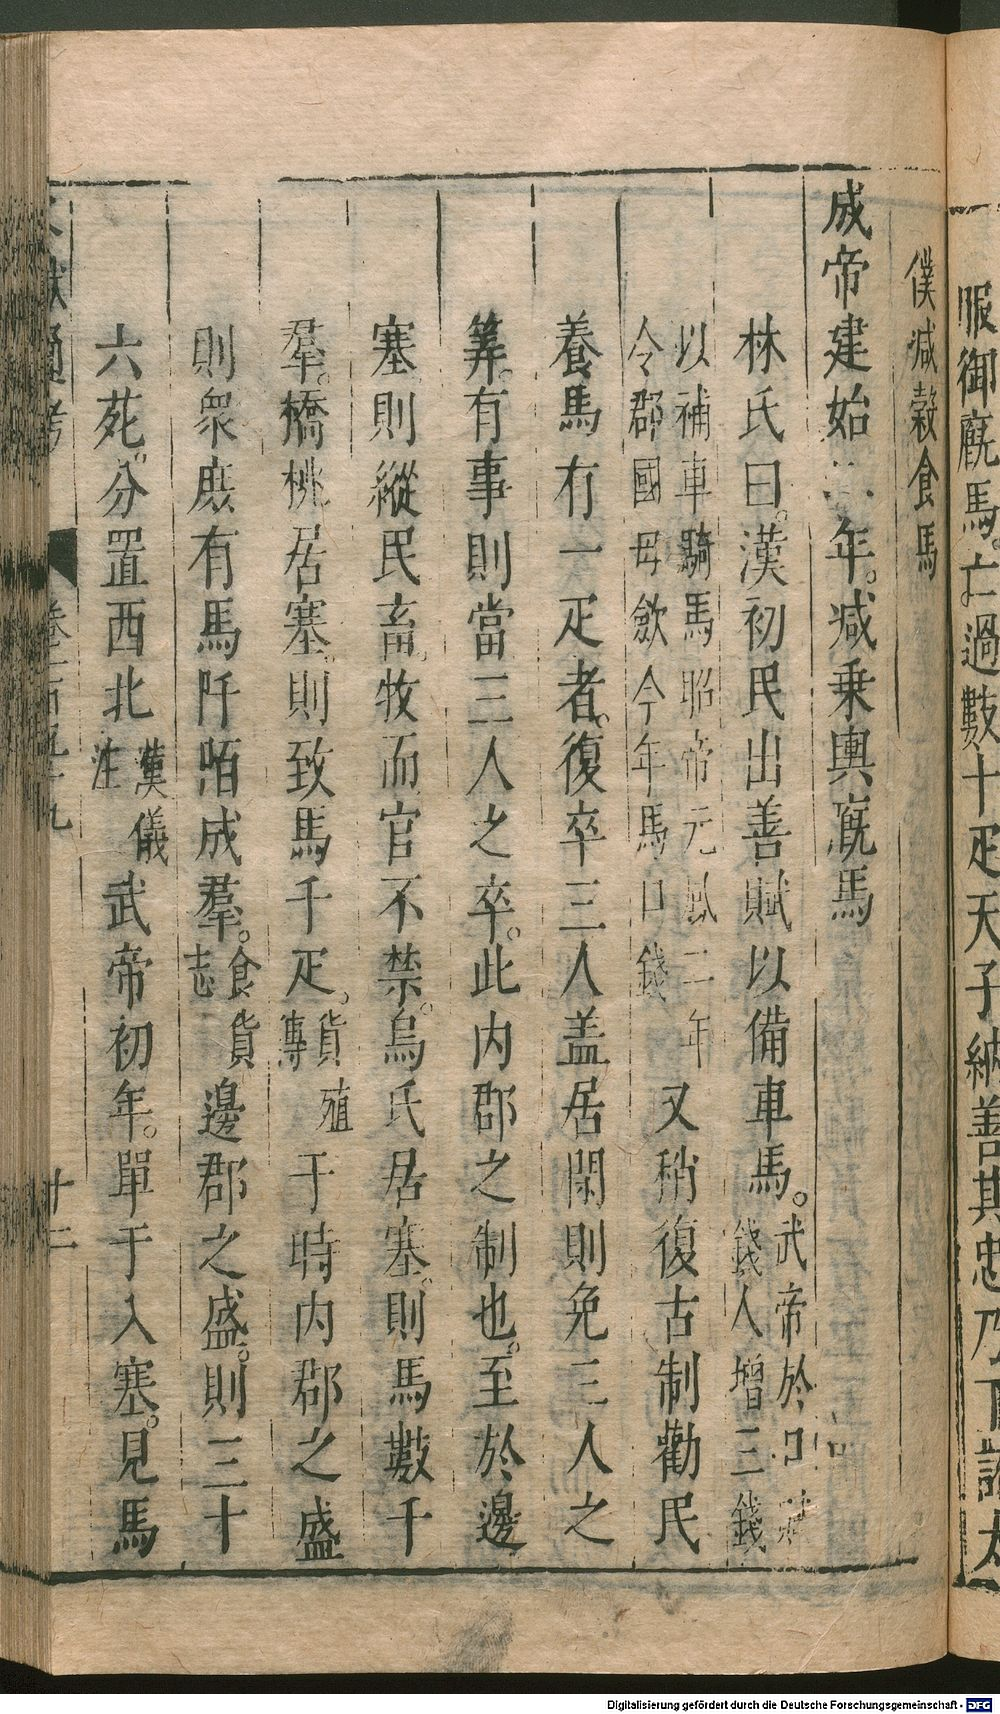 服御廐馬。亡過數十疋天子納善其忠乃下詔太
僕减穀食馬
成帝建始二年。减乗輿廐馬
林氏曰。漢初民出善賦以備車馬。武帝於口賦錢人增三錢
以補車騎馬昭帝元鳳二年令郡國毋歛今年馬口錢又稍復古制勸民
養馬有一疋者。復卒三人盖居閑則免三人之
筭。有事則當三人之卒。此内郡之制也。至於邊
塞則縱民畜牧而官不禁。烏氏居塞。則馬數千
羣。橋桃居塞則致馬千疋。貨殖傳于時内郡之盛
則衆庶有馬阡陌成羣。食貨志邊郡之盛。則三十
六苑。分置西北漢儀注武帝初年。單于入塞。見馬
文獻通考 卷一百五十九 廿二
Digitalisierung gefördert durch die Deutsche Forschungsgemeinschaft - DFG